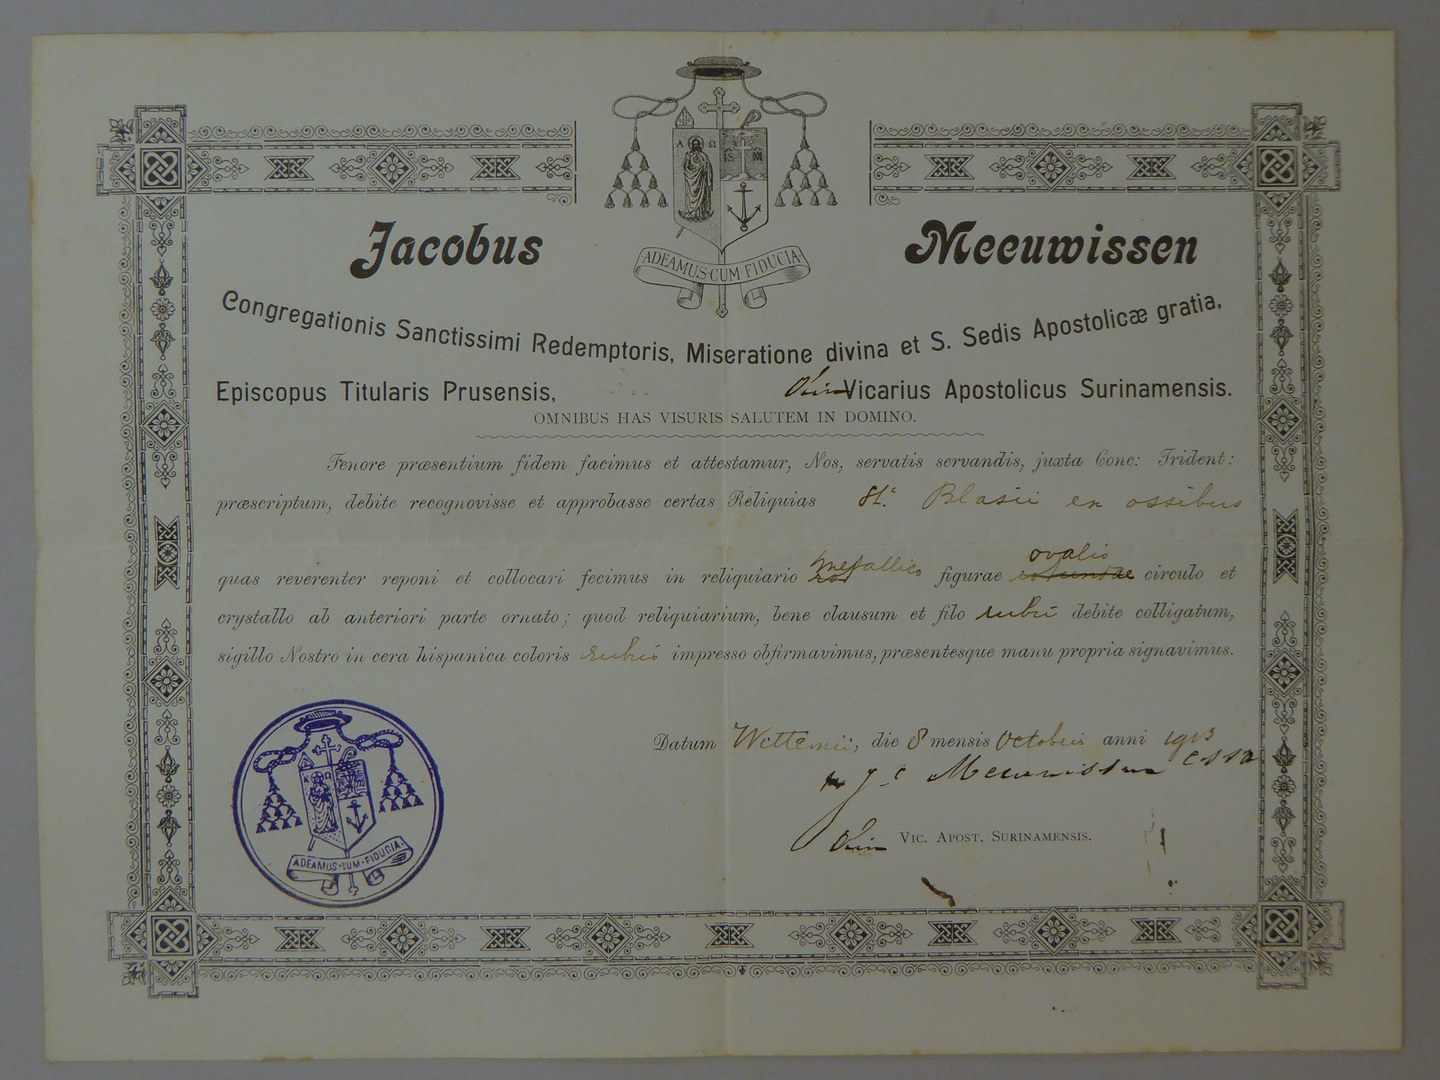 Α Ω
IS M
ADEAMUS·CUM·FIDUCIA
Jacobus Meeuwissen
Congregationis Sanctissimi Redemptoris, Miseratione divina et S. Sedis Apostolicæ gratia,
Episcopus Titularis Prusensis, Olim Vicarius Apostolicus Surinamensis.
OMNIBUS HAS VISURIS SALUTEM IN DOMINO.
Tenore præsentium fidem facimus et attestamur, Nos, servatis servandis, juxta Conc: Trident:
præscriptum, debite recognovisse et approbasse certas Reliquias St. Blasii ex ossibus
quas reverenter reponi et collocari fecimus in reliquiario metallico figurae ovalis circulo et
crystallo ab anteriori parte ornato; quod reliquiarium, bene clausum et filo rubri debite colligatum,
sigillo Nostro in cera hispanica coloris rubri impresso obfirmavimus, præsentesque manu propria signavimus.
Datum Wittemii, die 8 mensis Octobris anni 1913
J. C. Meeuwissen CSSR
Olim VIC. APOST. SURINAMENSIS.
Α Ω
ADEAMUS·CUM·FIDUCIA